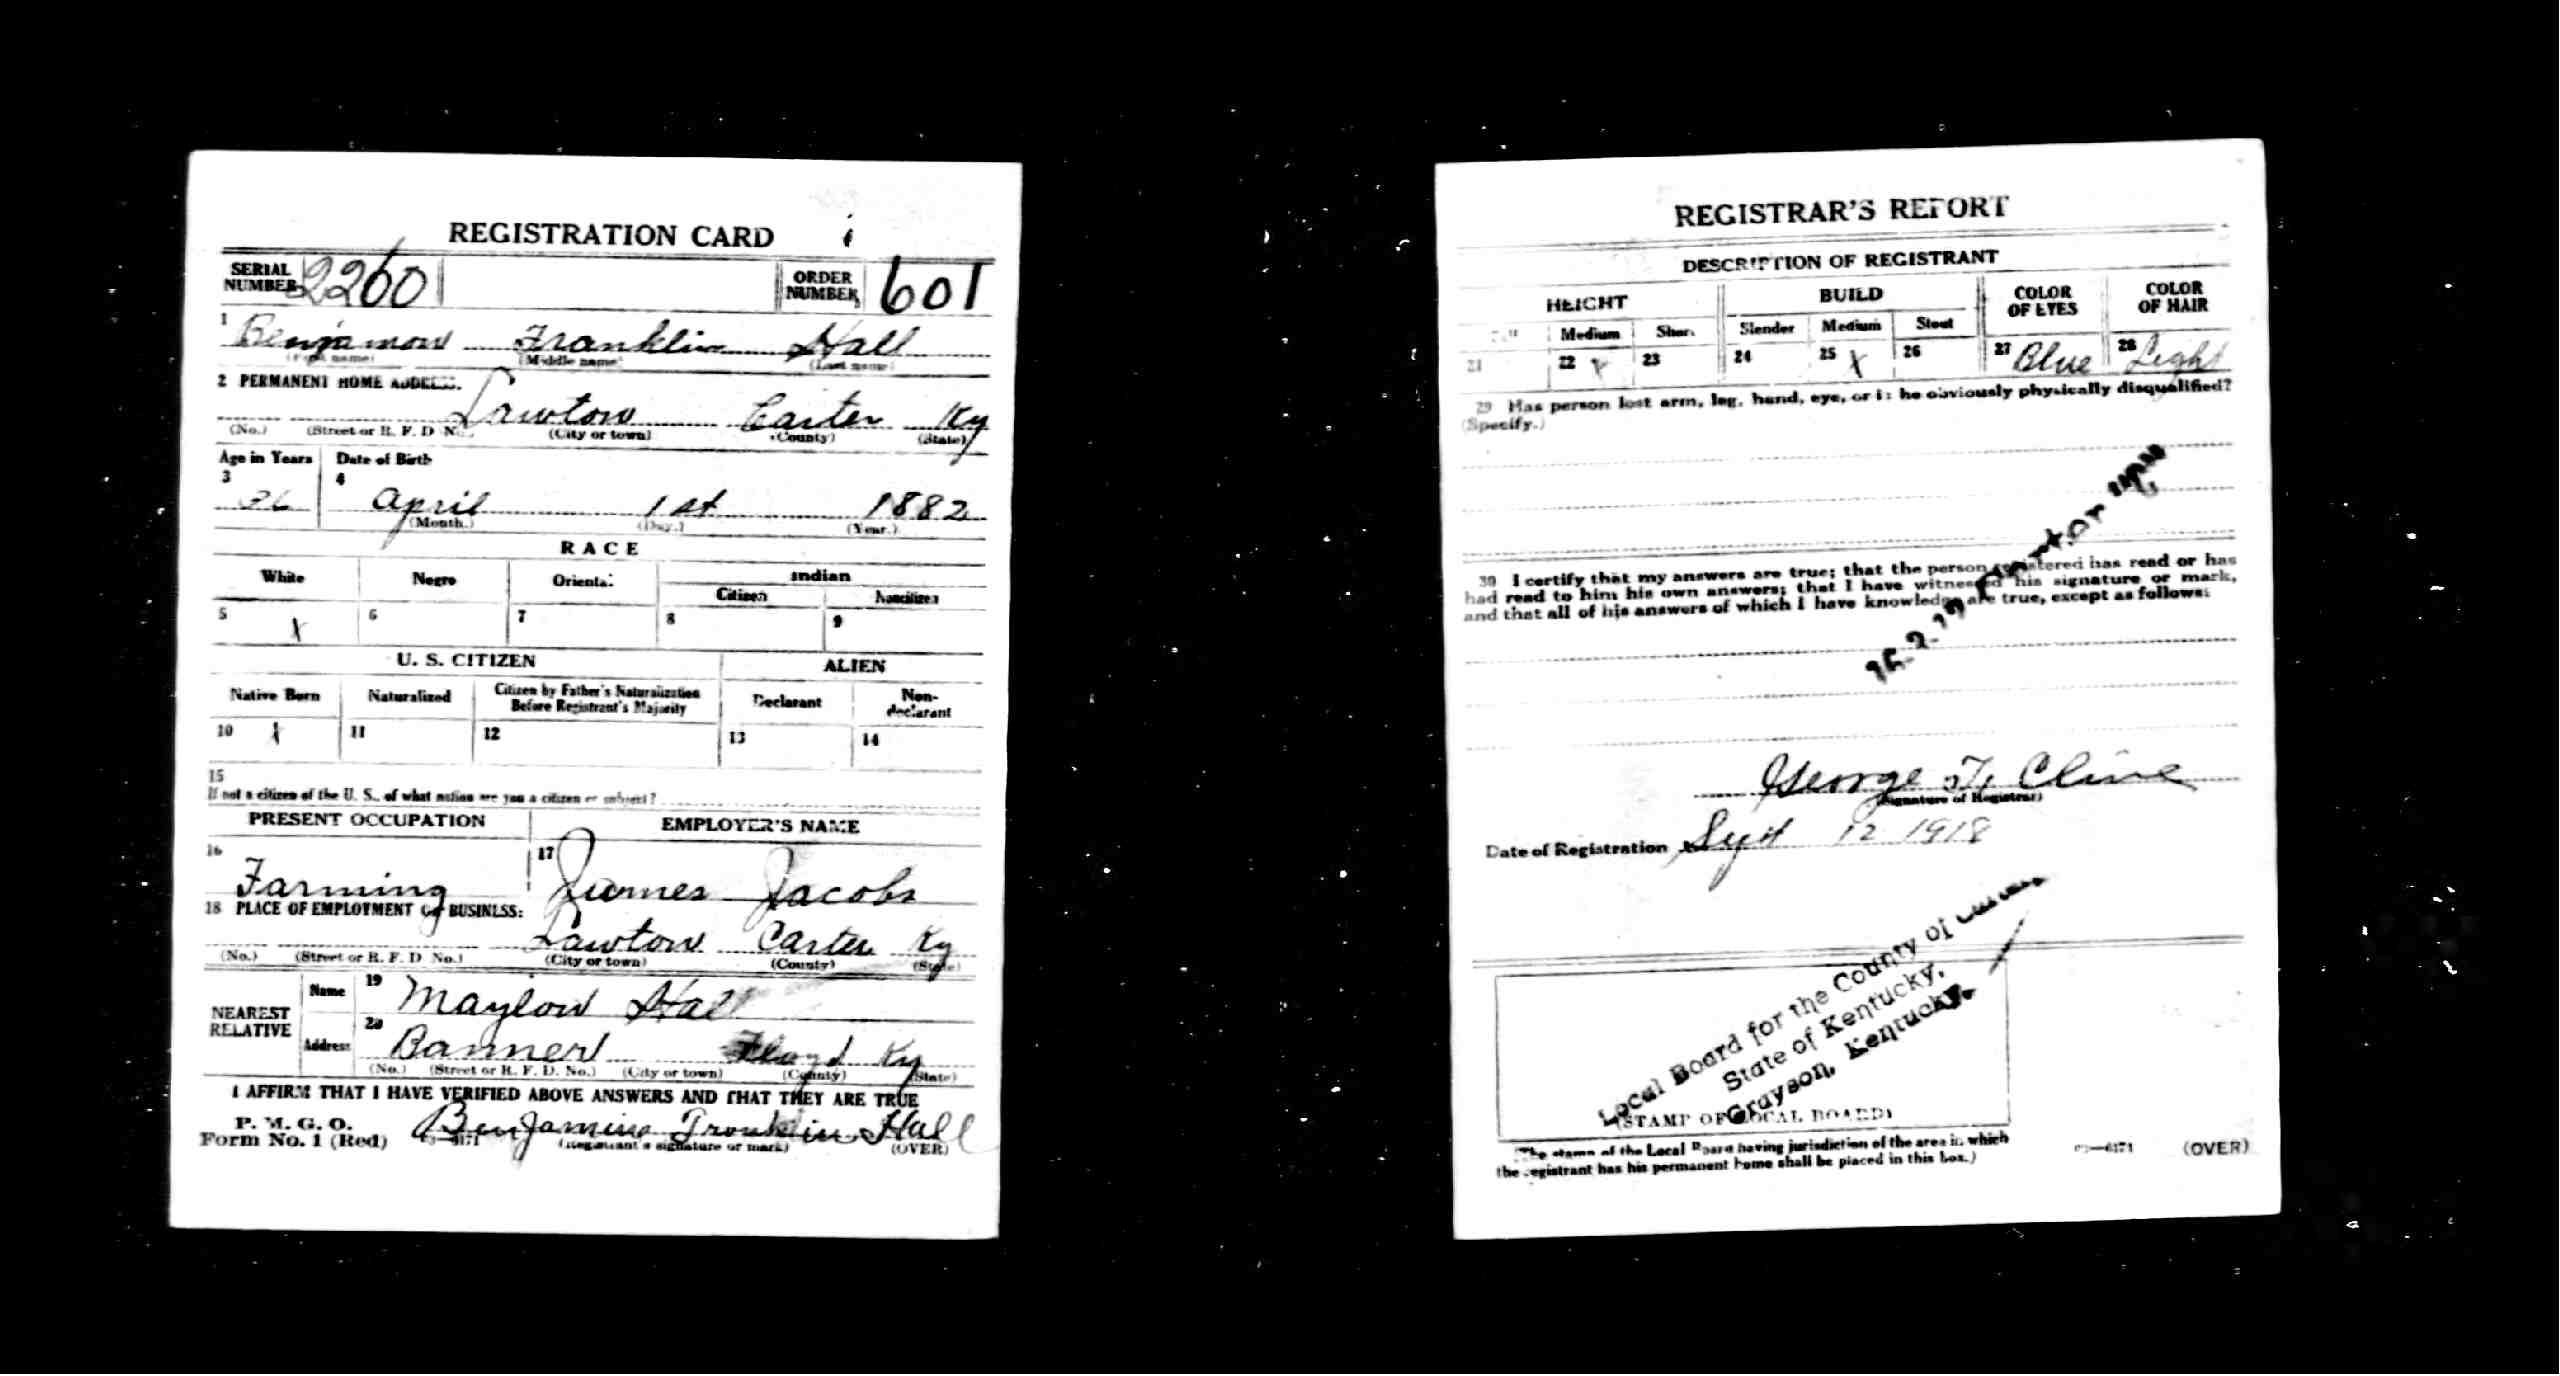 REGISTRATION CARD
SERIAL NUMBER 2260 ORDER NUMBER 601
1 Benjamon Franklin Hall
(First name) (Middle name) (Last name)
2 PERMANENT HOME ADDRESS.
Lawton Carter Ky
(No.) (Street or R. F. D No.) (City or town) (County) (State)
Age in Years Date of Birth
3 36 4 April 1st 1882
(Month.) (Day.) (Year.)
RACE
White Negro Oriental Indian
Citizen Noncitizen
5 X 6 7 8 9
U. S. CITIZEN ALIEN
Native Born Naturalized Citizen by Father's Naturalization Before Registrant's Majority Declarant Non-declarant
10 X 11 12 13 14
15
If not a citizen of the U. S., of what nation are you a citizen or subject?
PRESENT OCCUPATION EMPLOYER'S NAME
16 Farming 17 James Jacobs
18 PLACE OF EMPLOYMENT OR BUSINESS:
Lawton Carter Ky
(No.) (Street or R. F. D No.) (City or town) (County) (State)
NEAREST RELATIVE Name 19 Maylon Hall
Address 20 Banner Floyd Ky
(No.) (Street or R. F. D. No.) (City or town) (County) (State)
I AFFIRM THAT I HAVE VERIFIED ABOVE ANSWERS AND THAT THEY ARE TRUE
P. M. G. O.
Form No. 1 (Red) 03—6171 Benjamine Franklin Hall
(Registrant's signature or mark) (OVER)
REGISTRAR'S REPORT
DESCRIPTION OF REGISTRANT
HEIGHT BUILD COLOR OF EYES COLOR OF HAIR
Tall Medium Short Slender Medium Stout
21 22 X 23 24 25 X 26 27 Blue 28 Light
29 Has person lost arm, leg, hand, eye, or is he obviously physically disqualified?
(Specify.)
30 I certify that my answers are true; that the person registered has read or has
had read to him his own answers; that I have witnessed his signature or mark,
and that all of his answers of which I have knowledge are true, except as follows:
George Cline
(Signature of Registrar)
Date of Registration Sept 12 1918
Local Board for the County of Carter
State of Kentucky,
Grayson, Kentucky.
(STAMP OF LOCAL BOARD)
(The stamp of the Local Board having jurisdiction of the area in which
the registrant has his permanent home shall be placed in this box.)
03—6171 (OVER)